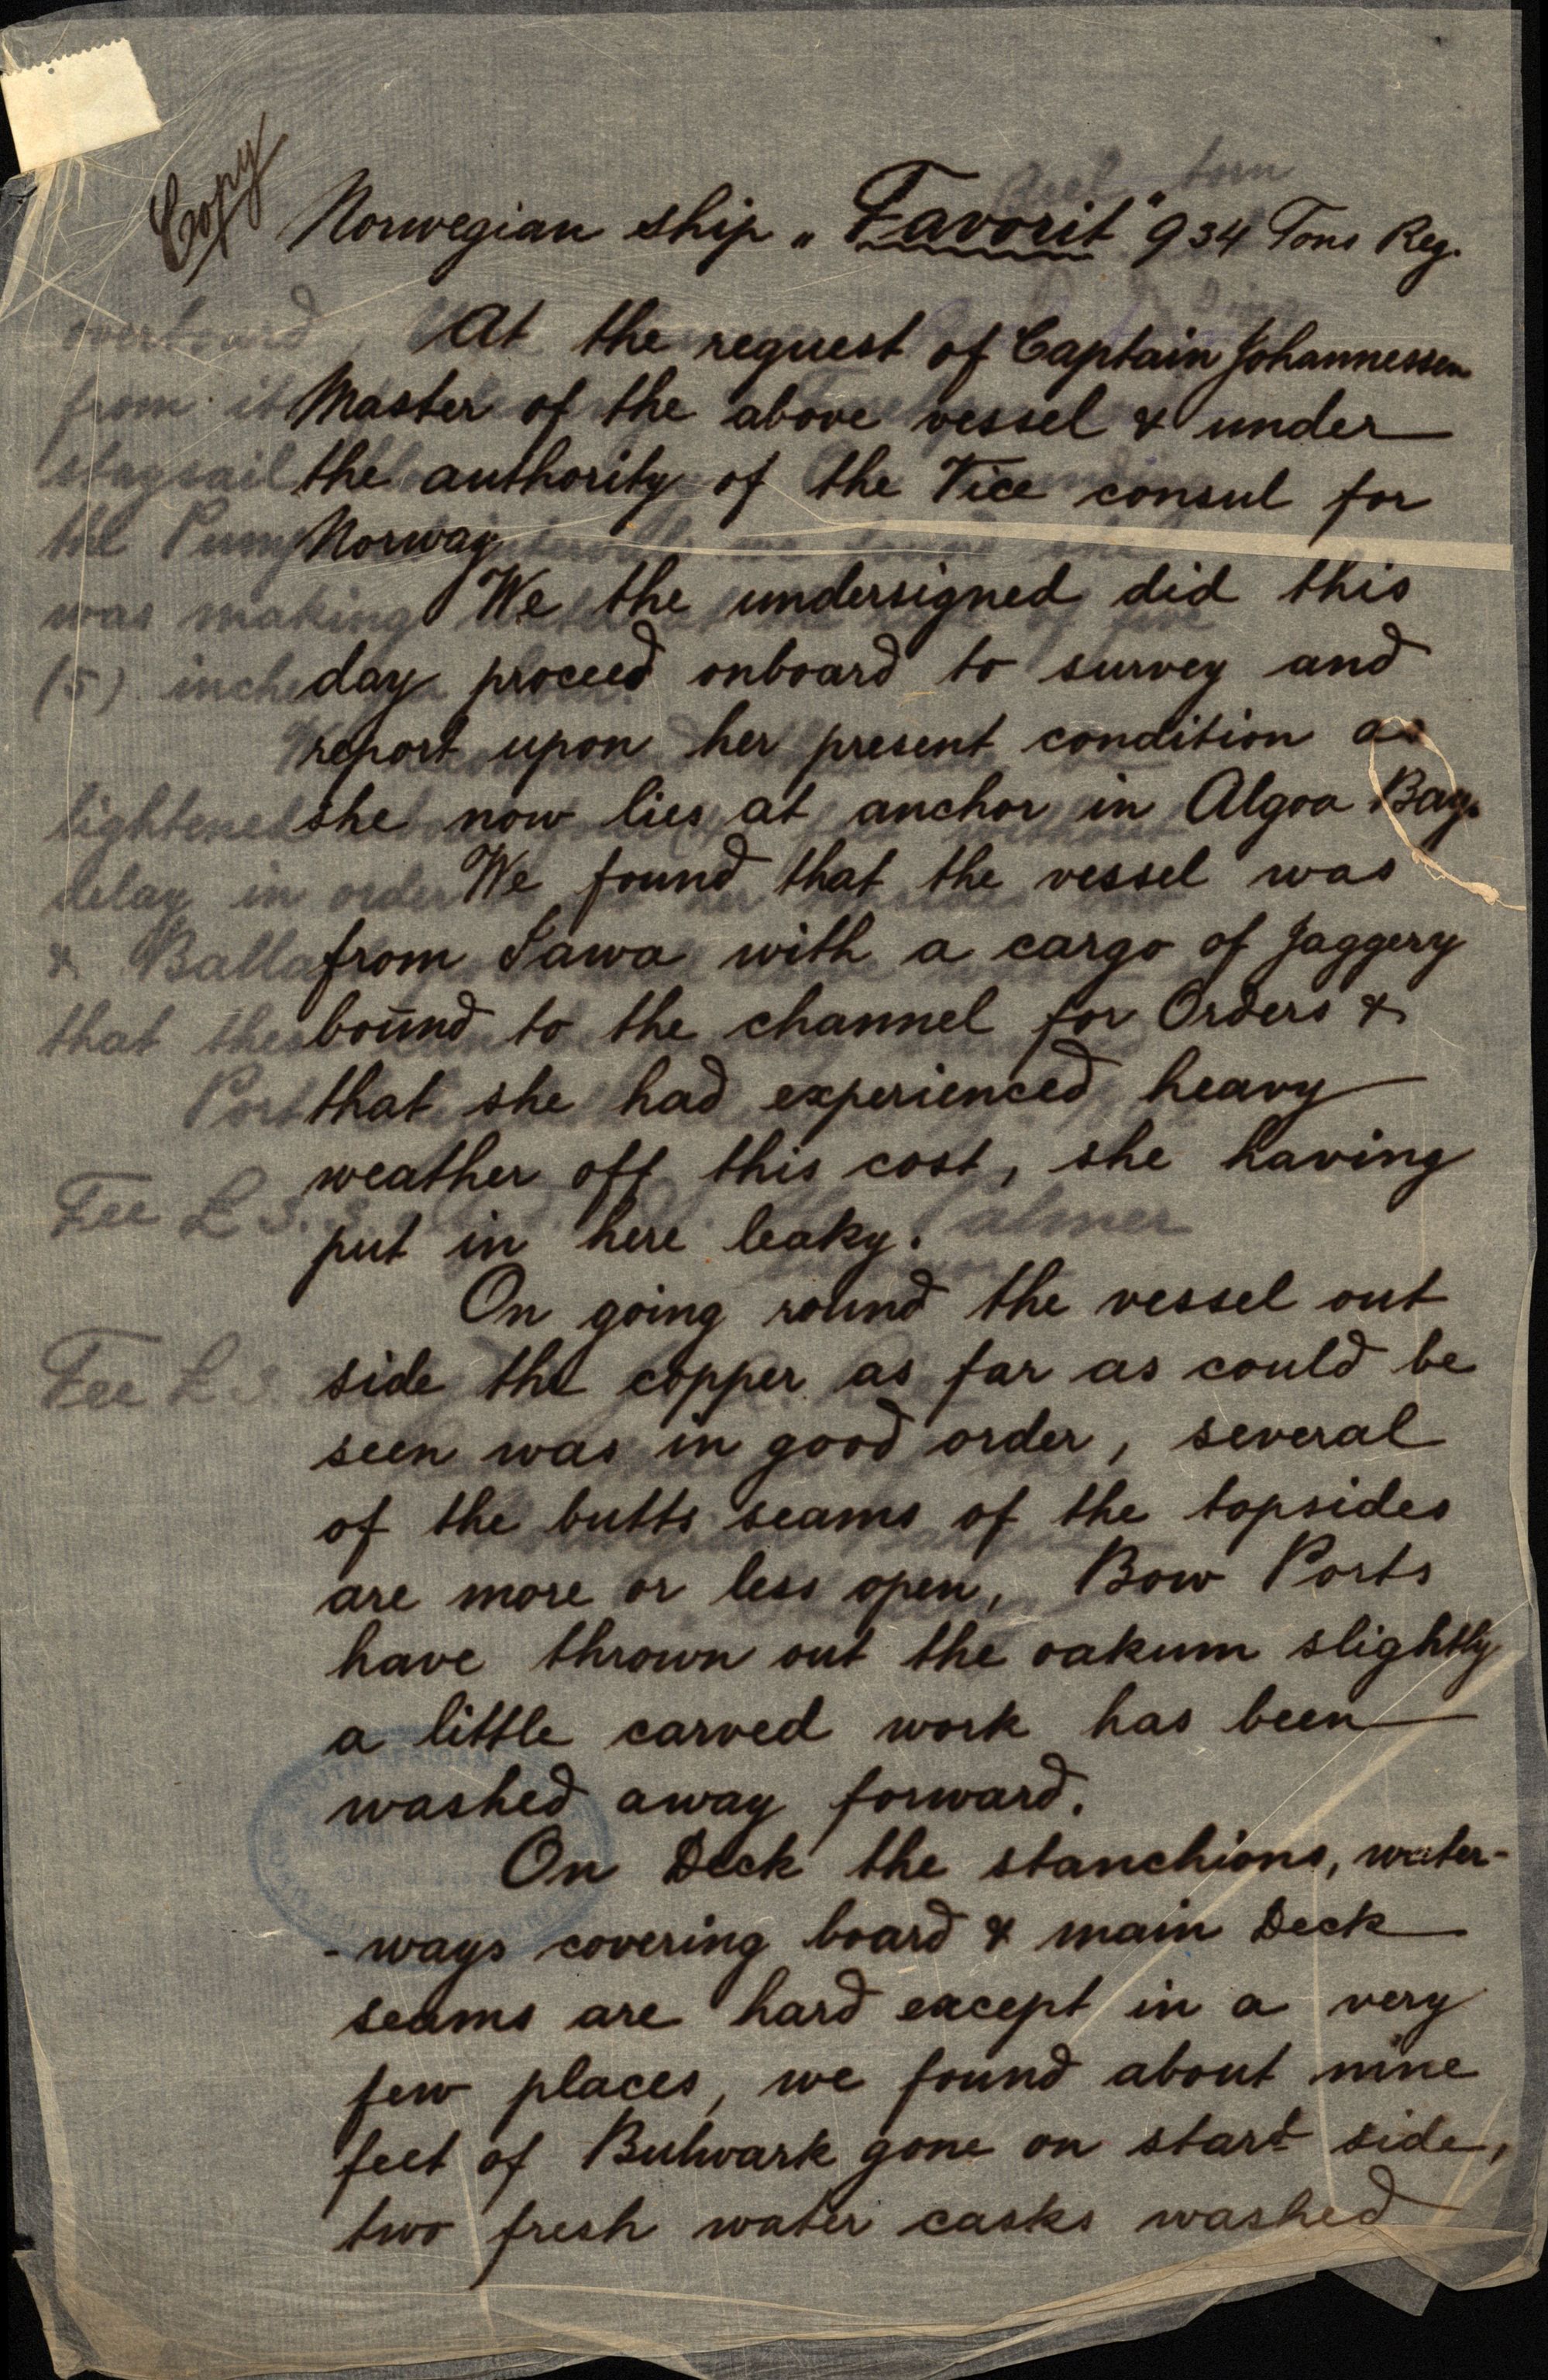 Copy
Norwegian ship „Favorit" 934 Tons Reg.
At the request of Captain Johannessen
Master of the above vessel & under
the authority of the Vice consul for
Norway
We the undersigned did this
day proceed onboard to survey and
report upon her present condition as
she now lies at anchor in Algoa Bay.
We found that the vessel was
from Jawa with a cargo of Jaggery
bound to the channel for Orders &
that she had experienced heavy
weather off this cost, she having
put in here leaky.
On going round the vessel out
side the copper as far as could be
seen was in good order, several
of the butts seams of the topsides
are more or less open, Bow Ports
have thrown out the oakum slightly
a little carved work has been
washed away forward.
On Deck the stanchions, water-
-ways covering board & main Deck
seams are hard except in a very
few places, we found about nine
feet of Bulwark gone on start side,
two fresh water casks washed